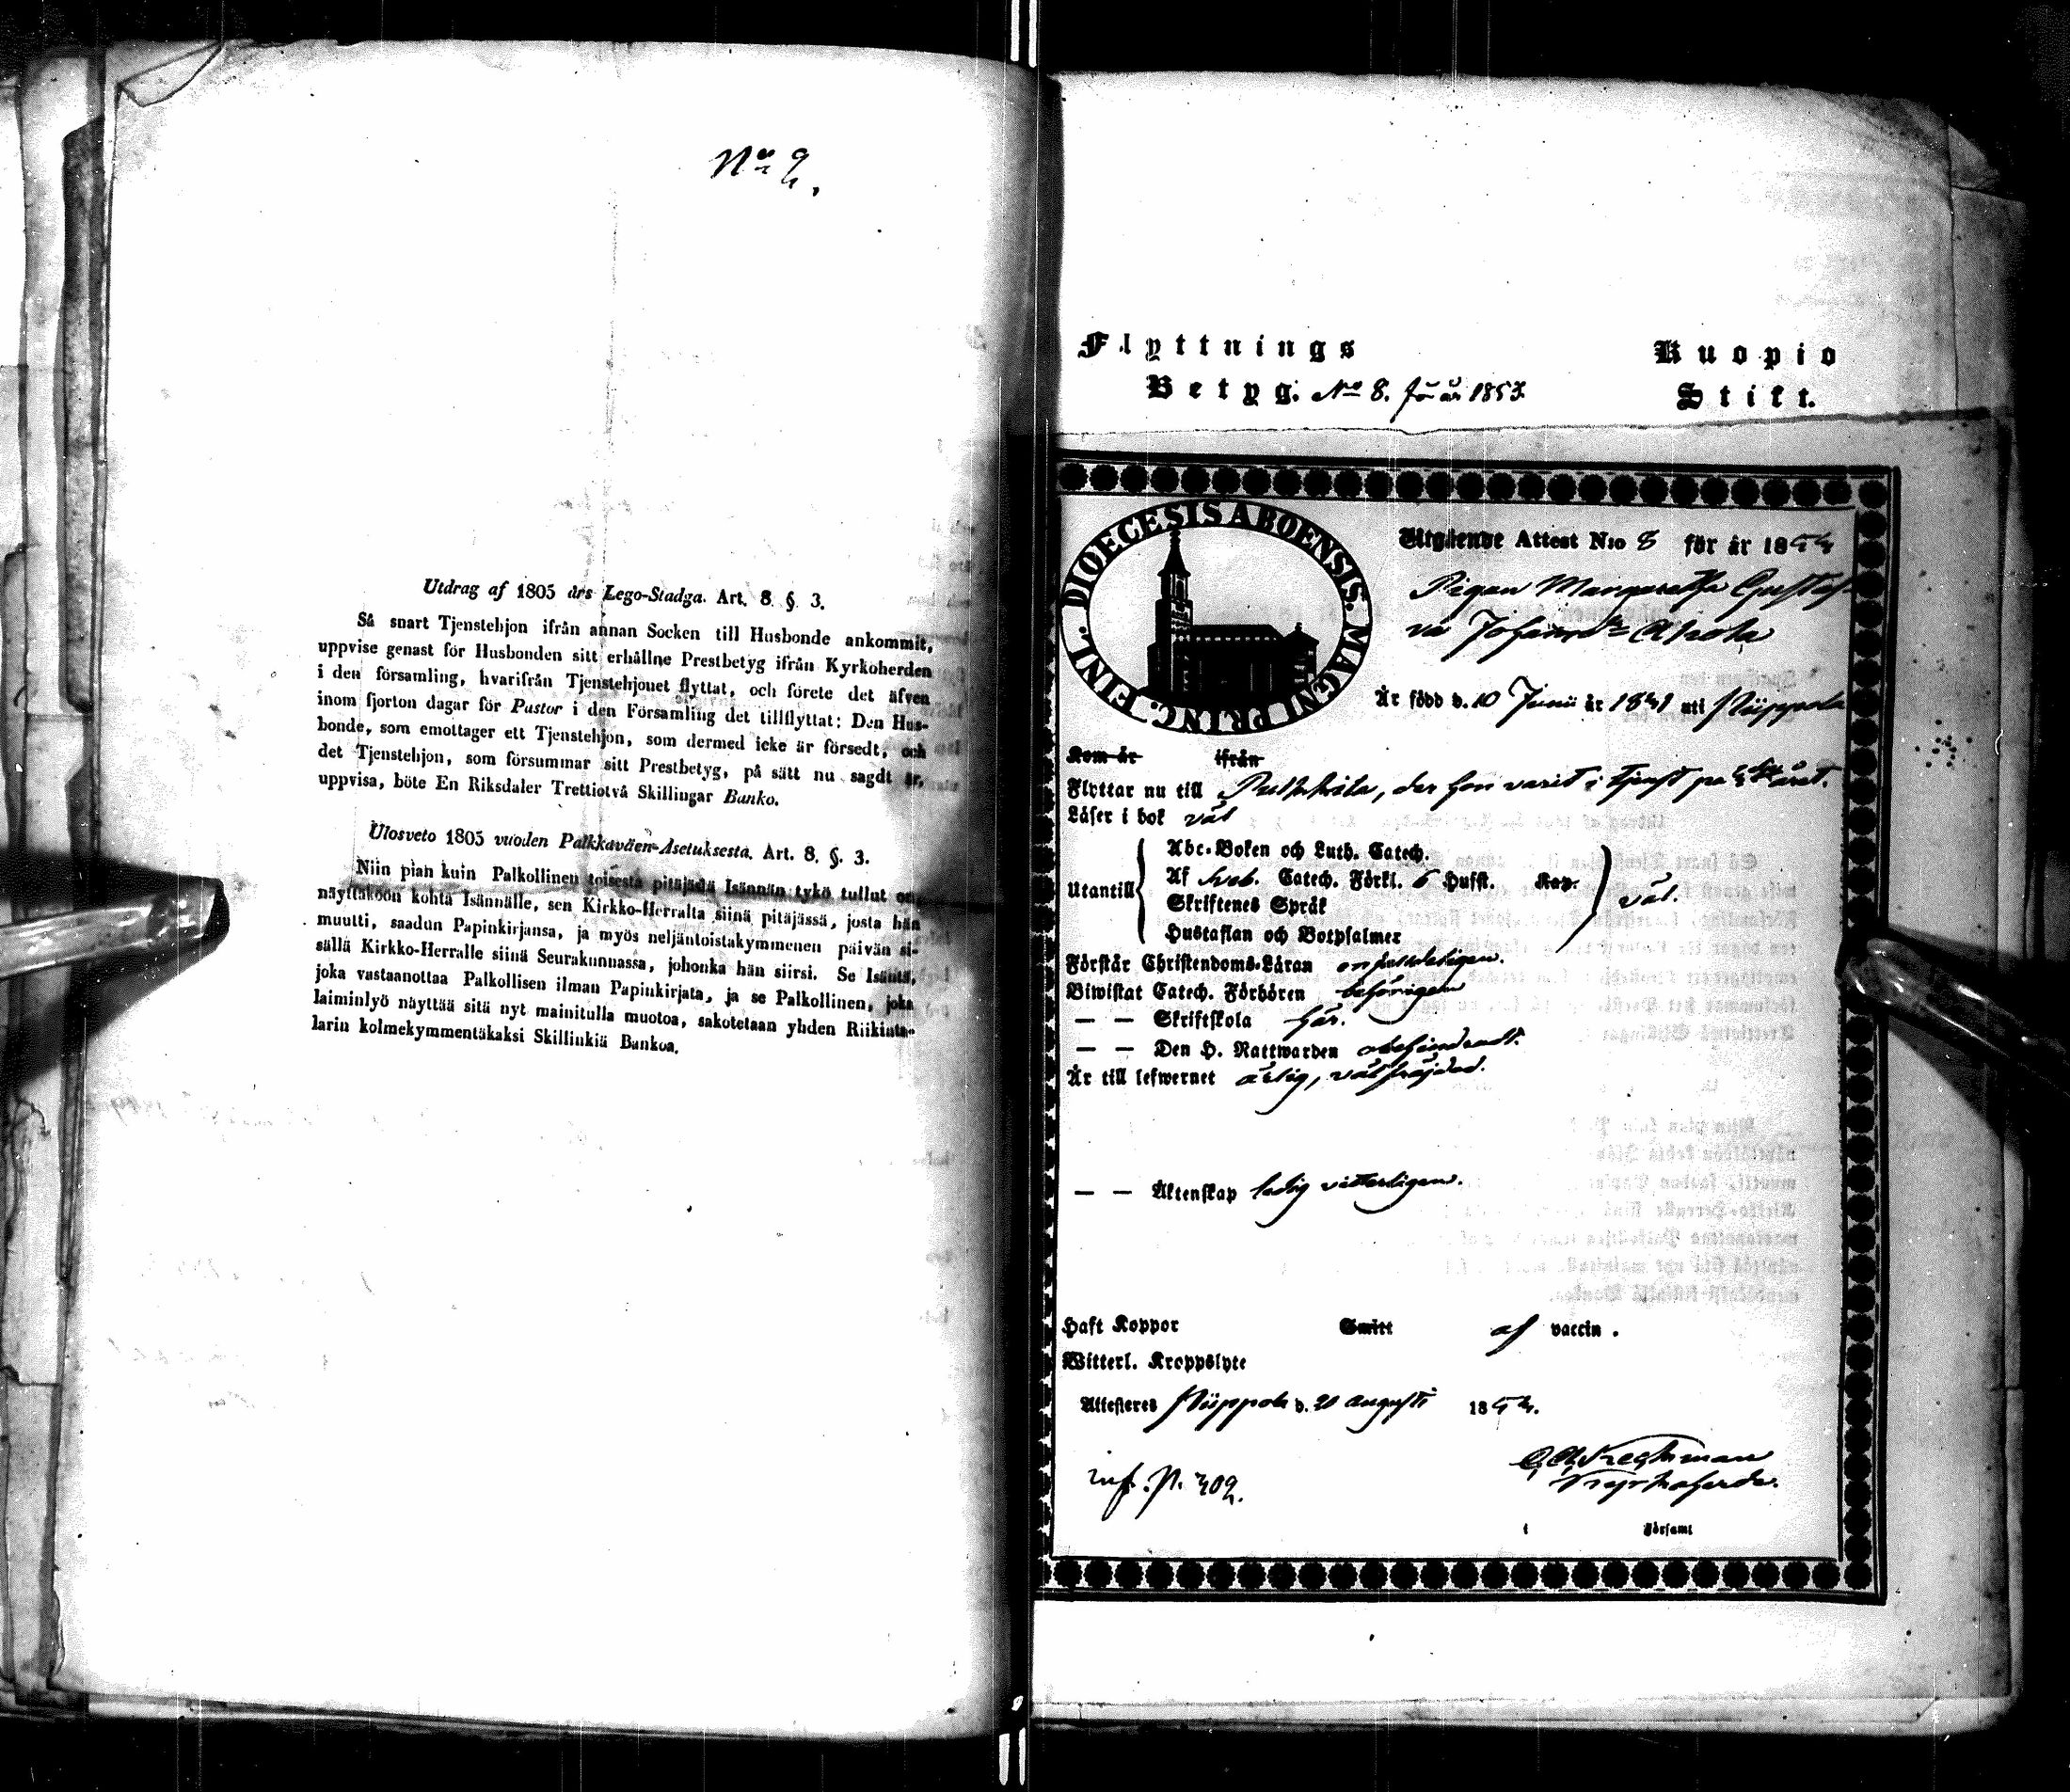 No 2.
Utdrag af 1805 års Lego-Stadga. Art. 8 §. 3.
Så snart Tjenstehjon ifrån annan Socken till Husbonde ankommit,
uppvise genast för Husbonden sitt erhållne Prestbetyg ifrån Kyrkoherden
i den församling, hvarifrån Tjenstehjonet flyttat, och förete det äfven
inom fjorton dagar för Pastor i den Församling det tillflyttat: Den Hus-
bonde, som emottager ett Tjenstehjon, som dermed icke är försedt, och
det Tjenstehjon, som försummar sitt Prestbetyg, på sätt nu sagdt är,
uppvisa, böte En Riksdaler Trettiotvå Skillingar Banko.
Ulosveto 1805 vuoden Palkkaväen-Asetuksesta. Art. 8. §. 3.
Niin pian kuin Palkollinen toisesta pitäjästä Isännän tykö tullut on,
näyttäköön kohta Isännälle, sen Kirkko-Herralta siinä pitäjässä, josta hän
muutti, saadun Papinkirjansa, ja myös neljäntoistakymmenen päivän si-
sällä Kirkko-Herralle siinä Seurakunnassa, johonka hän siirsi. Se Isäntä,
joka vastaanottaa Palkollisen ilman Papinkirjata, ja se Palkollinen, joka
laiminlyö näyttää sitä nyt mainitulla muotoa, sakotetaan yhden Riikinta-
larin kolmekymmentäkaksi Skillinkiä Bankoa.
Flyttnings
Betyg. No 8. för år 1853.
Kuopio
Stift.
DIOECESIS ABOENSIS. MAGNI PRINC. FINL.
Utgående Attest N:o 8 för år 1854
Pigan Margaretha Gustaf-
va Johansdr Ahola
Är född d. 10 Junii år 1831 uti Piippola
Kom år ifrån
Flyttar nu till Pulkkila, der hon varit i tjenst på
Läser i bok väl
Utantill
Abc-Boken och Luth. Catech.
Af Sveb. Catech. Förkl. 6 Hufst. Kap.
Skriftenes Språk
Hustaflan och Botpsalmer
väl.
Förstår Christendoms-Läran
Biwistat Catech. Förhören behörigen
— — Skriftskola här.
— — Den H. Nattwarden obehindradt.
Är till lefwernet ärlig, välfräjdad.
— — Äktenskap ledig vitterligen.
Haft Koppor Smitt af vaccin.
Witterl. Kroppslyte
Attesteras Piippola d. 20 Augusti 1854.
inf. p. 402.
Kyrkoherde.
i Församl